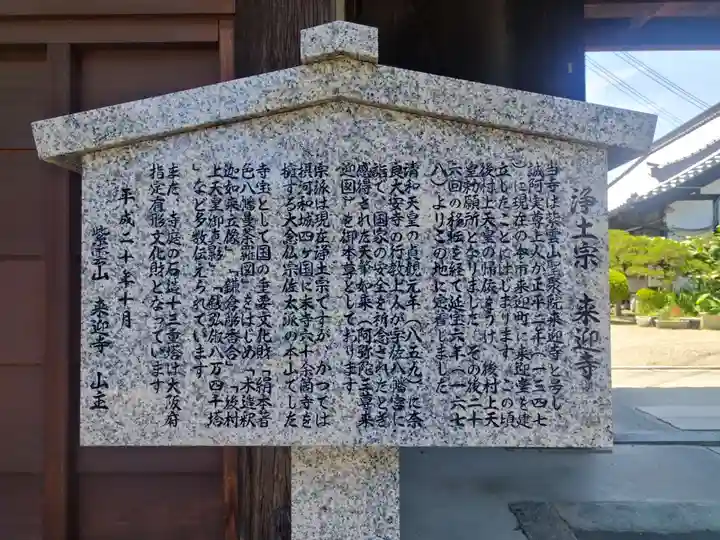 浄土宗 来迎寺
当寺は紫雲山聖衆院来迎寺と号し
誠阿実尊上人が正平二年(一三四七
)に現在の本市来迎町に来迎堂を建
立したことにはじまります この頃
後村上天皇の帰依をうけ 後村上天
皇勅願所となりました その後二十
六回の移転を経て延宝六年(一六七
八)よりこの地に定着しました
清和天皇の貞観元年(八五九)に奈
良大安寺の行教上人が宇佐八幡宮に
詣で 国家の安全を祈念されたとき
感得された天筆如来(阿弥陀三尊来
迎図)を御本尊としております
宗派は現在浄土宗ですが かつては
摂河和城四ケ国に末寺六十余箇寺を
擁する大念仏宗佐太派の本山でした
寺宝として国の重要文化財「絹本着
色八幡曼荼羅図」をはじめ「木造釈
迦如来立像」「鎌倉彫香合」「後村
上天皇御真影」「銭弘俶八万四千塔
」など多数伝えられています
また、寺庭の石造十三重塔は大阪府
指定有形文化財となっています
平成二十年十月
紫雲山 来迎寺 山主